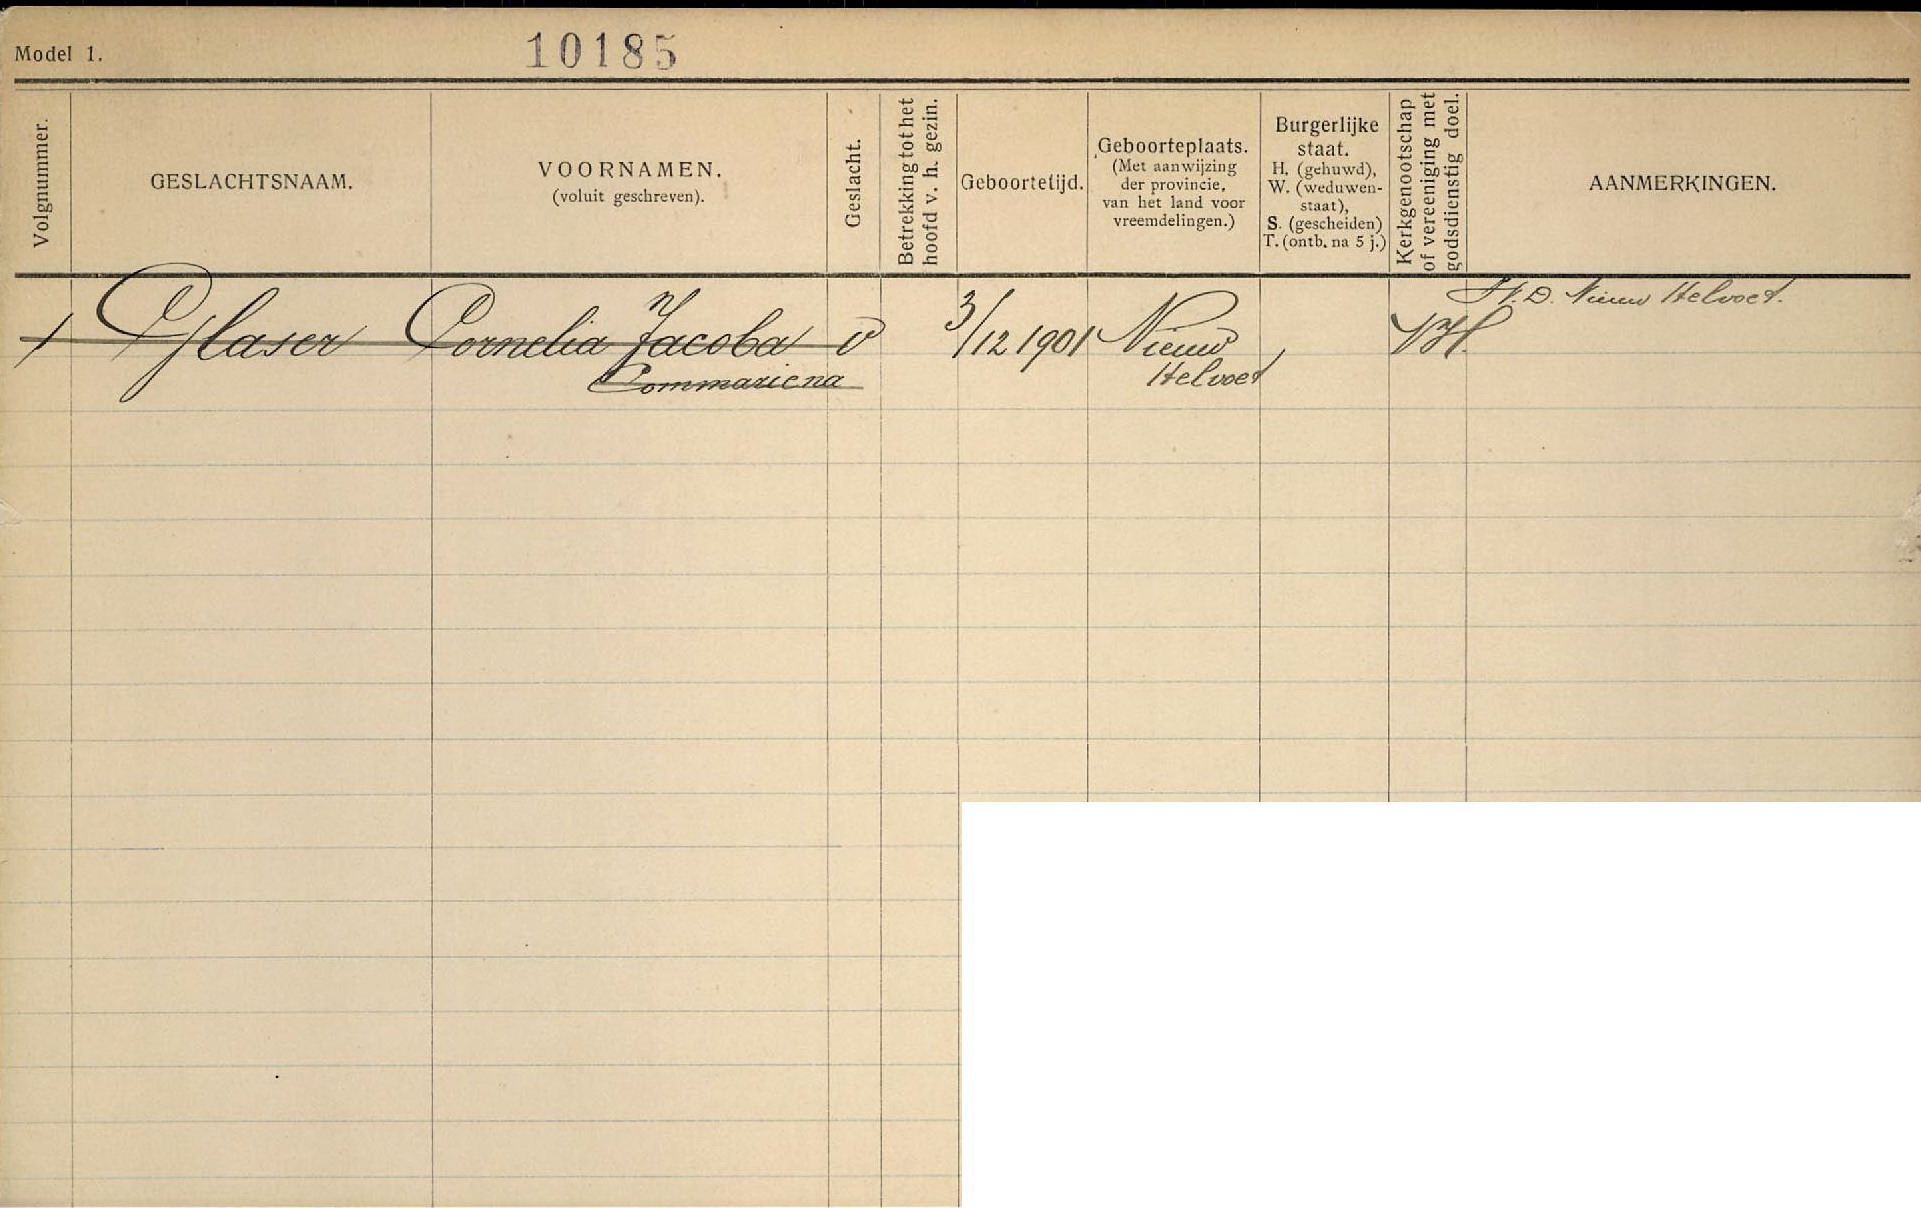 Model 1.
10185
Volgnummer.
GESLACHTSNAAM.
VOORNAMEN.
(voluit geschreven).
Geslacht.
Betrekking tot het
hoofd v. h. gezin.
Geboortetijd.
Geboorteplaats.
(Met aanwijzing
der provincie,
van het land voor
vreemdelingen.)
Burgerlijke
staat.
H. (gehuwd),
W. (weduwen-
staat),
S. (gescheiden)
T. (ontb. na 5 j.)
Kerkgenootschap
of vereeniging met
godsdienstig doel.
AANMERKINGEN.
D. Nieuw Helvoet.
1 Glaser Cornelia Jacoba v 3/12 1901 Nieuw NH.
Commariena Helvoet